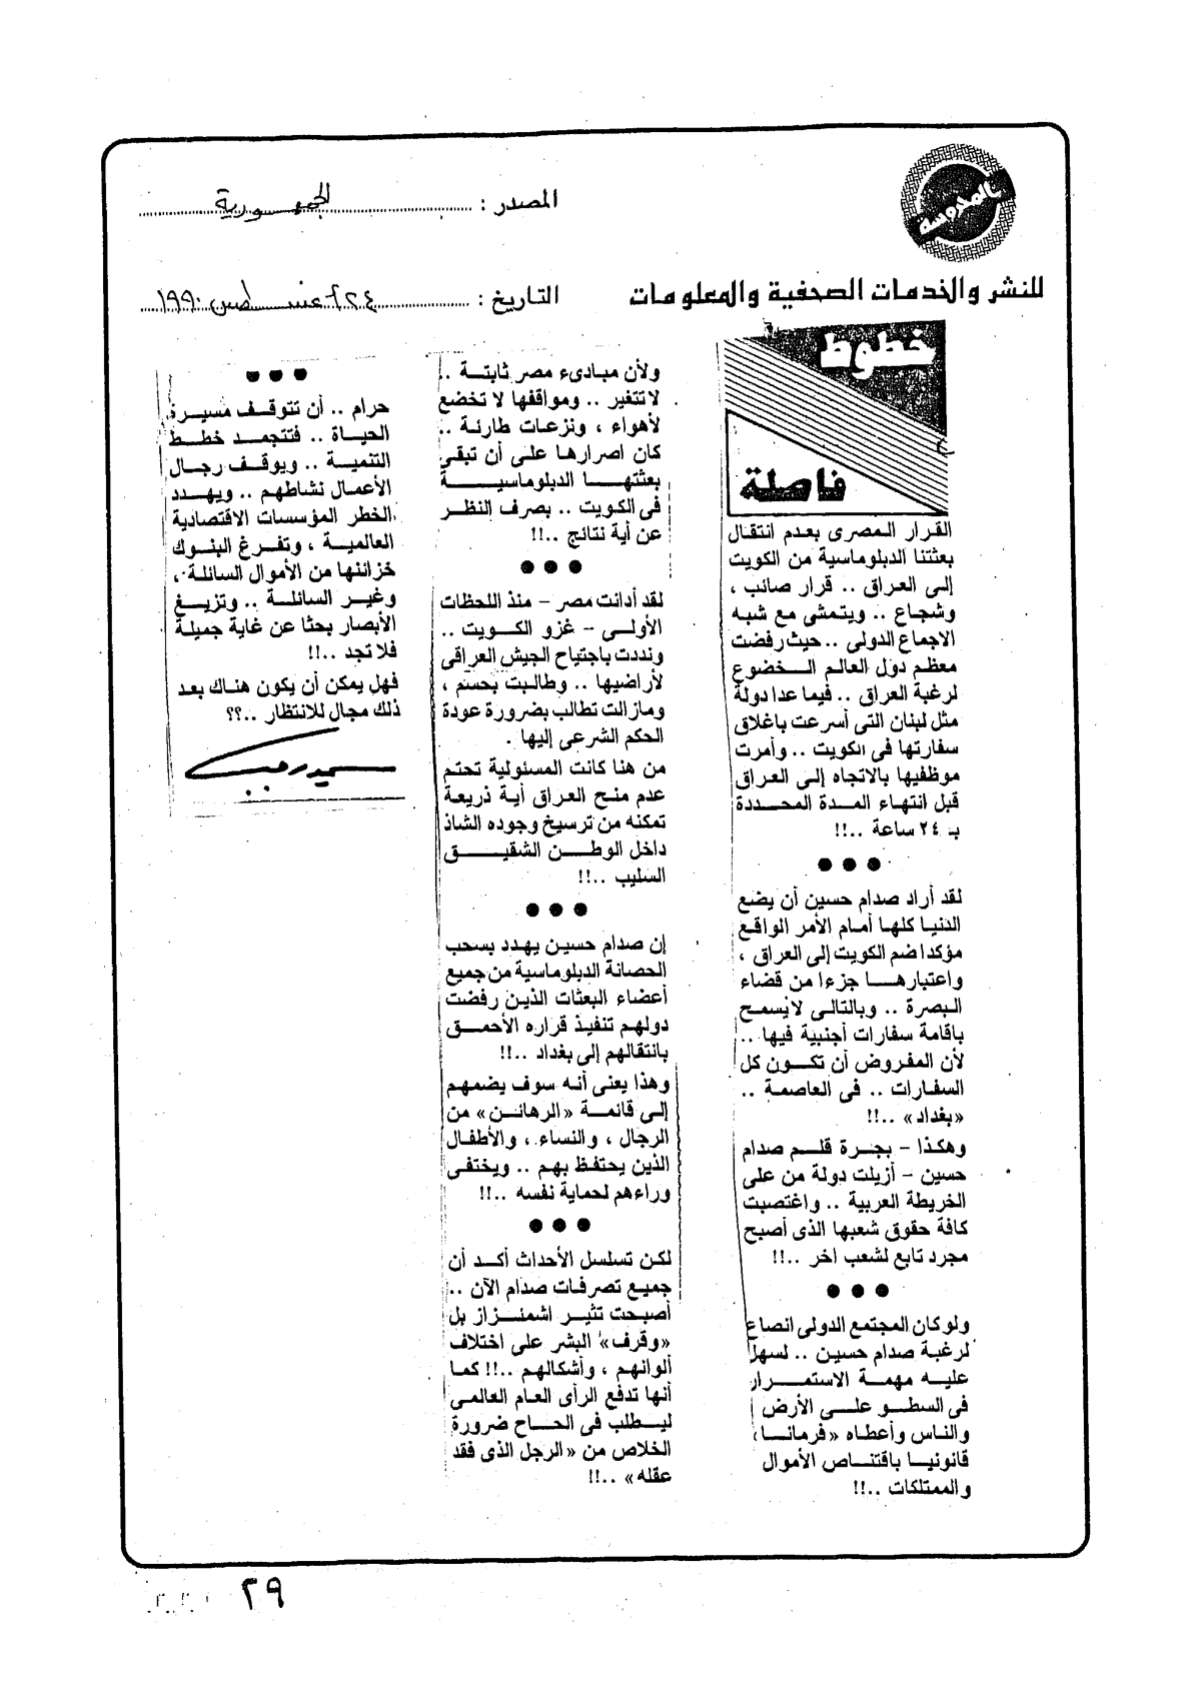 المصدر : الجمهورية
التاريخ : ٢٤ أغسطس ١٩٩٠
للنشر والخدمات الصحفية والمعلومات
خطوط
فاصلة
القرار المصرى بعدم انتقال
بعثتنا الدبلوماسية من الكويت
إلى العراق .. قرار صائب ،
وشجاع .. ويتمشى مع شبه
الاجماع الدولى .. حيث رفضت
معظم دول العالم الخضوع
لرغبة العراق .. فيما عدا دولة
مثل لبنان التى أسرعت باغلاق
سفارتها فى الكويت .. وأمرت
موظفيها بالاتجاه إلى العراق
قبل انتهاء المدة المحددة
بـ ٢٤ ساعة ..!!
● ● ●
لقد أراد صدام حسين أن يضع
الدنيا كلها أمام الأمر الواقع
مؤكدا ضم الكويت إلى العراق ،
واعتبارها جزءا من قضاء
البصرة .. وبالتالى لايسمح
باقامة سفارات أجنبية فيها ..
لأن المفروض أن تكون كل
السفارات .. فى العاصمة ..
«بغداد» ..!!
وهكذا – بجرة قلم صدام
حسين – أزيلت دولة من على
الخريطة العربية .. واغتصبت
كافة حقوق شعبها الذى أصبح
مجرد تابع لشعب اخر ..!!
● ● ●
ولو كان المجتمع الدولى انصاع
لرغبة صدام حسين .. لسهل
عليه مهمة الاستمرار
فى السطو على الأرض
والناس وأعطاه «فرمانا»
قانونيا باقتناص الأموال
والممتلكات ..!!
ولأن مبادىء مصر ثابتة ..
لاتتغير .. ومواقفها لا تخضع
لأهواء ، ونزعات طارئة ..
كان اصرارها على أن تبقى
بعثتها الدبلوماسية
فى الكويت .. بصرف النظر
عن أية نتائج ..!!
● ● ●
لقد أدانت مصر – منذ اللحظات
الأولى – غزو الكويت ..
ونددت باجتياح الجيش العراقى
لأراضيها .. وطالبت بحسم ،
ومازالت تطالب بضرورة عودة
الحكم الشرعى إليها .
من هنا كانت المسئولية تحتم
عدم منح العراق أية ذريعة
تمكنه من ترسيخ وجوده الشاذ
داخل الوطن الشقيق
السليب ..!!
● ● ●
إن صدام حسين يهدد بسحب
الحصانة الدبلوماسية من جميع
أعضاء البعثات الذين رفضت
دولهم تنفيذ قراره الأحمق
بانتقالهم إلى بغداد ..!!
وهذا يعنى أنه سوف يضمهم
إلى قائمة «الرهائن» من
الرجال ، والنساء ، والأطفال
الذين يحتفظ بهم .. ويختفى
وراءهم لحماية نفسه ..!!
● ● ●
لكن تسلسل الأحداث أكد أن
جميع تصرفات صدام الآن ..
أصبحت تثير اشمئزاز بل
«وقرف» البشر على اختلاف
ألوانهم ، وأشكالهم ..!! كما
أنها تدفع الرأى العام العالمى
ليطلب فى الحاح ضرورة
الخلاص من «الرجل الذى فقد
عقله» ..!!
● ● ●
حرام .. أن تتوقف مسيرة
الحياة .. فتتجمد خطط
التنمية .. ويوقف رجال
الأعمال نشاطهم .. ويهدد
الخطر المؤسسات الاقتصادية
العالمية ، وتفرغ البنوك
خزائنها من الأموال السائلة ،
وغير السائلة .. وتزيغ
الأبصار بحثا عن غاية جميلة
فلا تجد ..!!
فهل يمكن أن يكون هناك بعد
ذلك مجال للانتظار ..؟؟
سمير رجب
٢٩